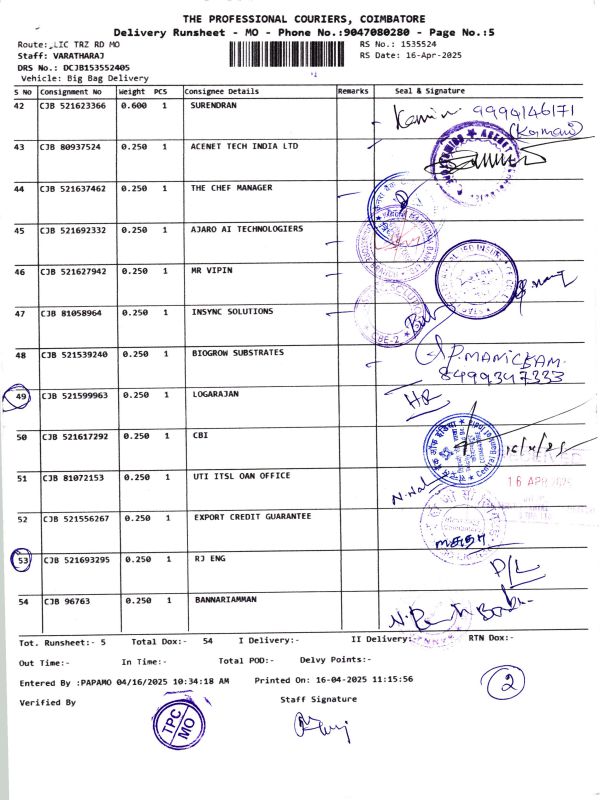 THE PROFESSIONAL COURIERS, COIMBATORE
Delivery Runsheet - MO - Phone No.:9047080280 - Page No.:5
Route:.LIC TRZ RD MO RS No.: 1535524
Staff: VARATHARAJ RS Date: 16-Apr-2025
DRS No.: DCJB153552405
Vehicle: Big Bag Delivery
S NO Consignment No Weight PCS Consignee Details Remarks Seal & Signature
42 CJB 521623366 0.600 1 SURENDRAN 9999146171
43 CJB 80937524 0.250 1 ACENET TECH INDIA LTD
44 CJB 521637462 0.250 1 THE CHEF MANAGER
45 CJB 521692332 0.250 1 AJARO AI TECHNOLOGIERS
46 CJB 521627942 0.250 1 MR VIPIN
47 CJB 81058964 0.250 1 INSYNC SOLUTIONS
48 CJB 521539240 0.250 1 BIOGROW SUBSTRATES P.MANICKAM.
8499347333
49 CJB 521599963 0.250 1 LOGARAJAN
50 CJB 521617292 0.250 1 CBI
51 CJB 81072153 0.250 1 UTI ITSL OAN OFFICE 16 APR 2025
52 CJB 521556267 0.250 1 EXPORT CREDIT GUARANTEE
53 CJB 521693295 0.250 1 RJ ENG D/L
54 CJB 96763 0.250 1 BANNARIAMMAN
Tot. Runsheet:- 5 Total Dox:- 54 I Delivery:- II Delivery:- RTN Dox:-
Out Time:- In Time:- Total POD:- Delvy Points:-
Entered By :PAPAMO 04/16/2025 10:34:18 AM Printed On: 16-04-2025 11:15:56
2
Verified By Staff Signature
TPC
MO